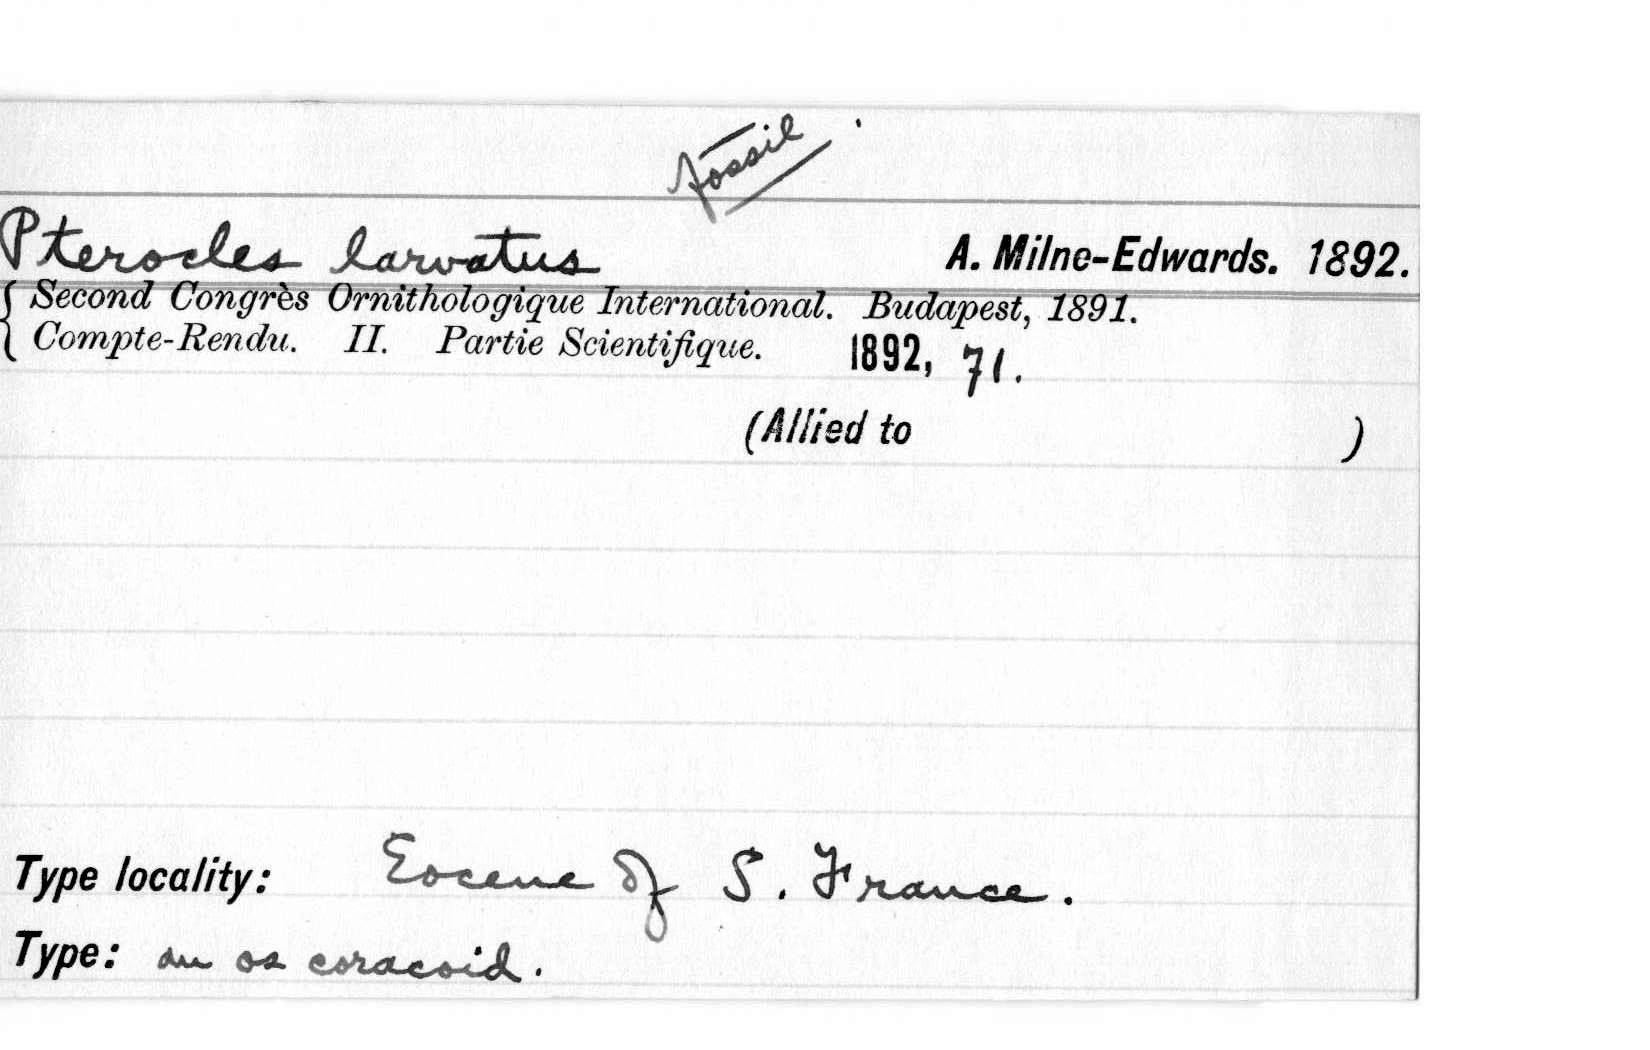 fossil.
Pterocles larvatus A. Milne-Edwards. 1892.
Second Congrès Ornithologique International. Budapest, 1891.
Compte-Rendu. II. Partie Scientifique. 1892, 71.
(Allied to )
Type locality: Eocene of S. France.
Type: an os coracoid.